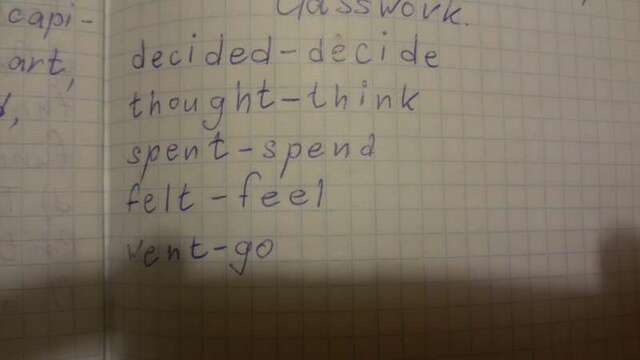 capi-
art,
Classwork.
decided-decide
thought-think
spent-spend
felt-feel
went-go